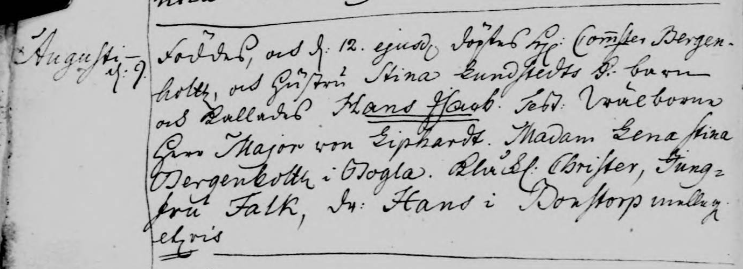 Augusti
d. 9. Föddes, och d. 12. ejusd. döptes H: Com̄ster Bergen-
holtz, och Hustru Stina Lundstedts S: barn
och kallades Hans Jacob. Test: Wälborne
Herr Major von Liphardt. Madam Lena Stina
Bergenholtz i Bogla. Klåck: Christer, Jung-
fru Falk, Dr: Hans i Bonstorp